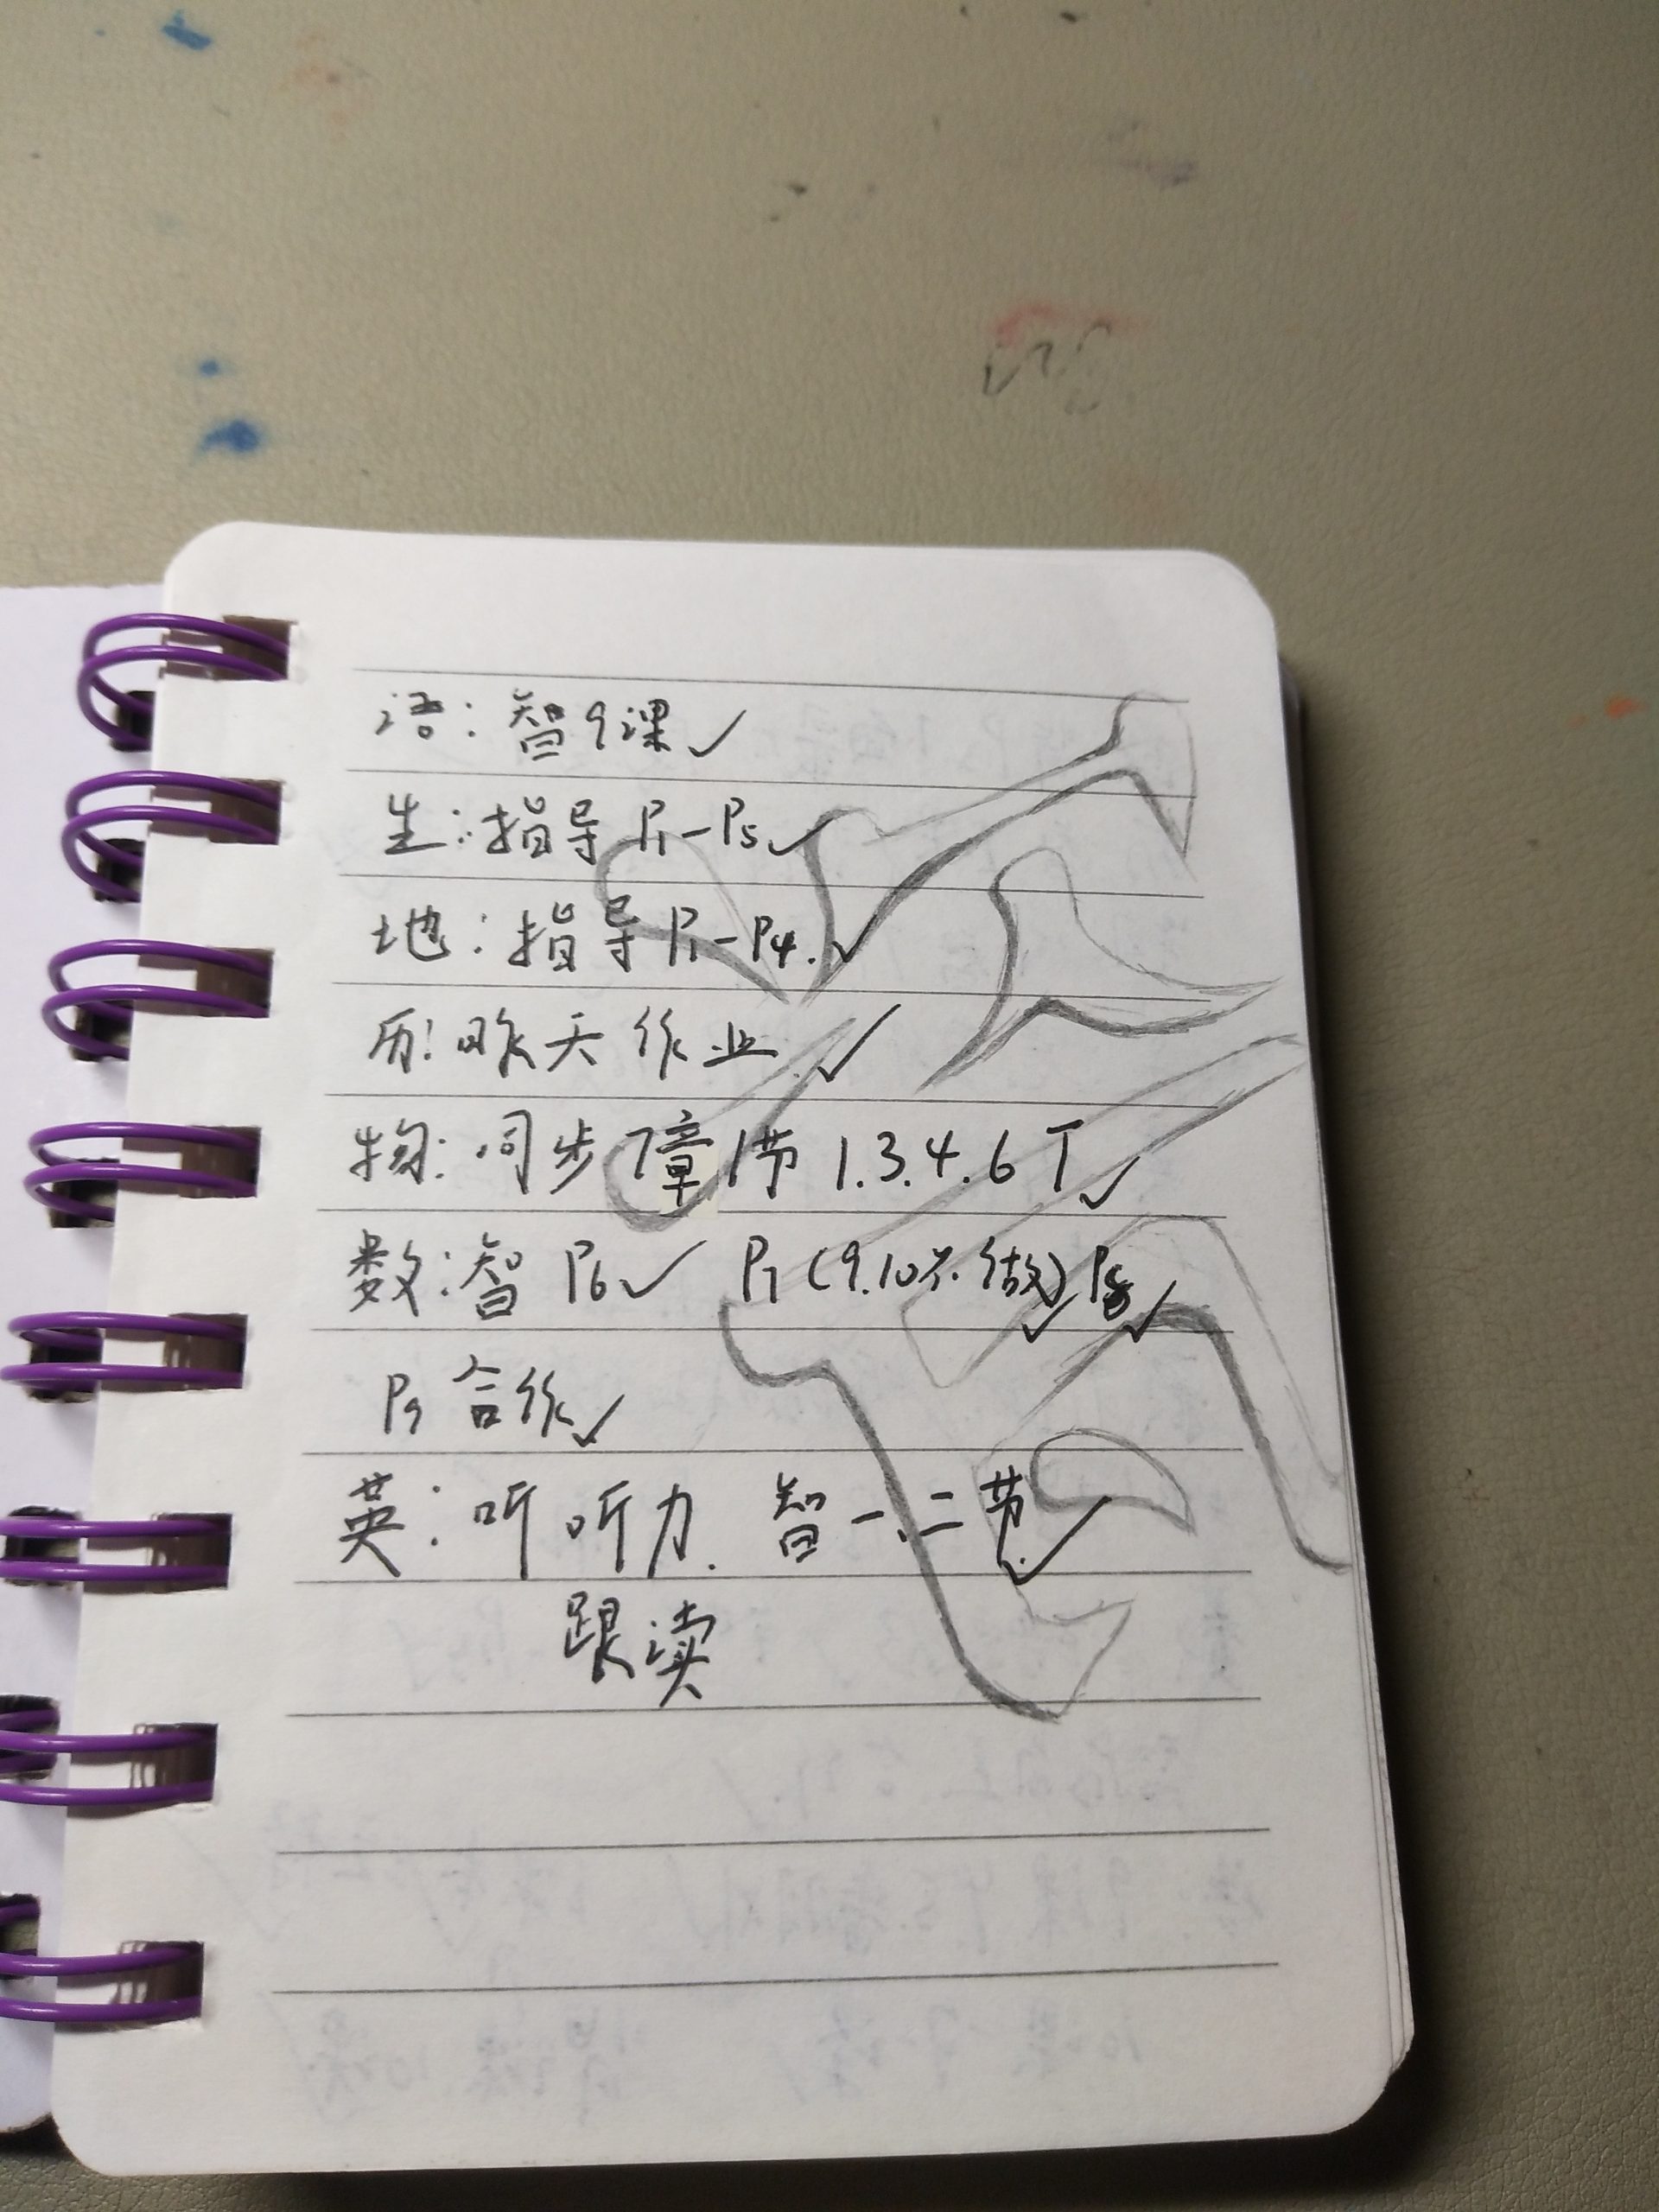 语：智9课✓
生：指导P1-P5✓
地：指导P1-P4.✓
历：昨天作业✓
物：同步7章1节1.3.4.6T✓
数：智P6✓ P7(9.10不做)✓P8✓
P9合作✓
英：听听力.智一、二节✓
跟读